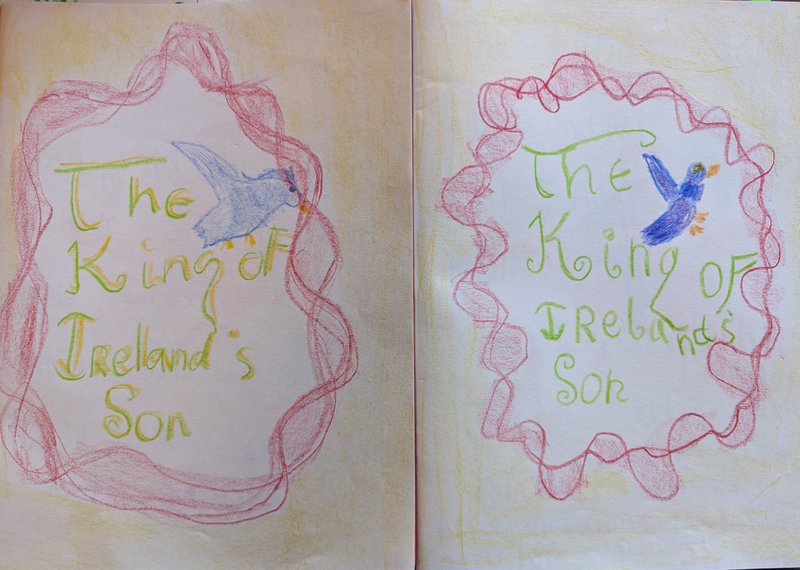 The
King oF
IReland's
Son
The
King oF
IReland's
Son